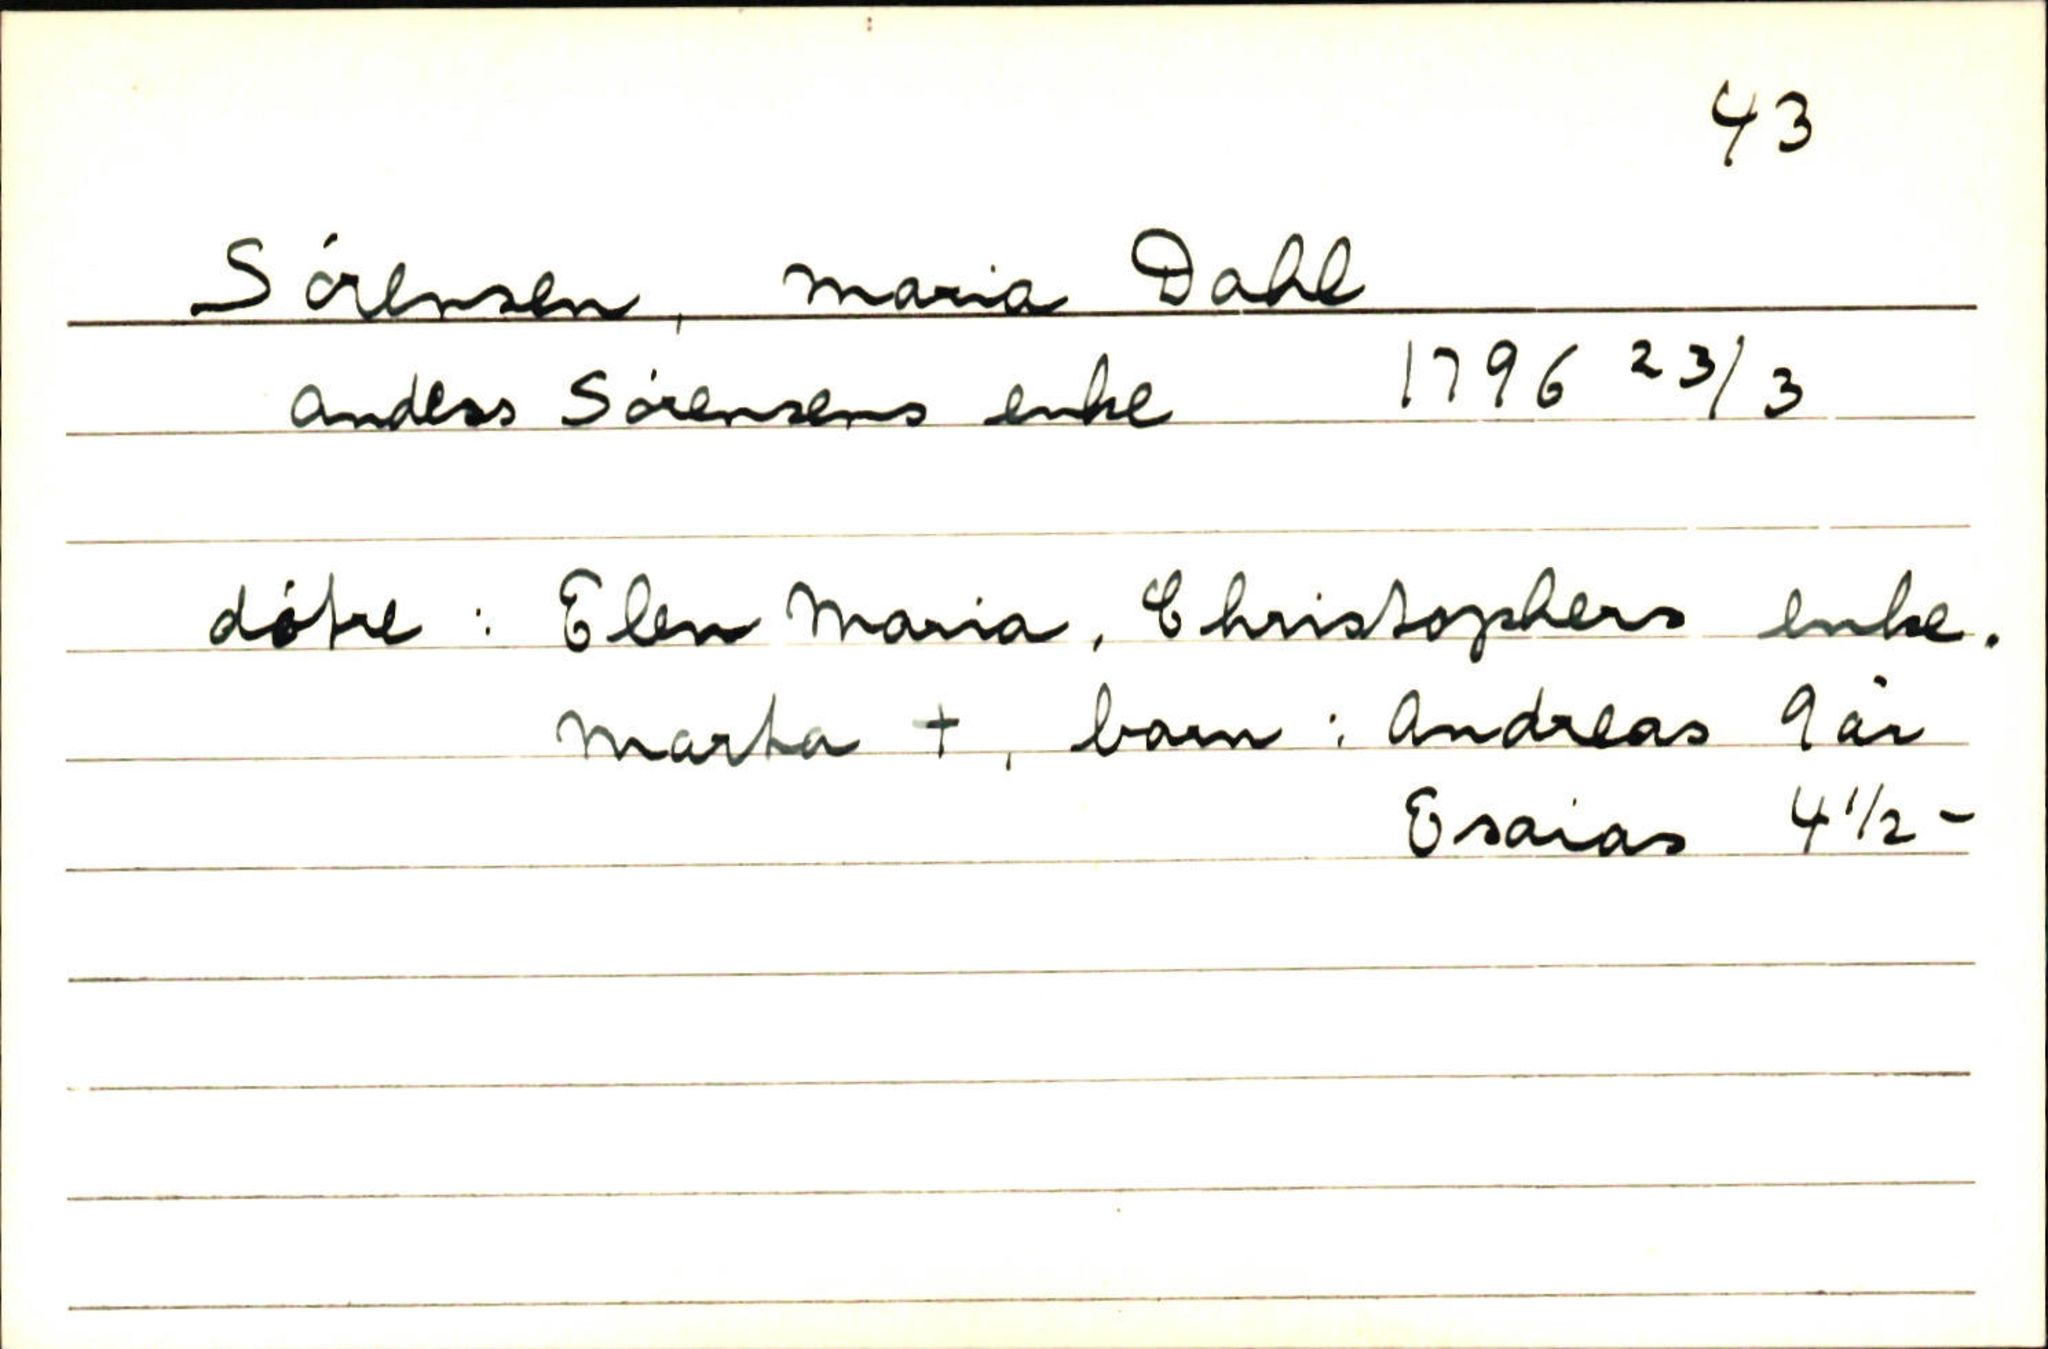 43
Sórensen, Maria Dahl
Anders Sórensens enke 1796 23/3
dótre : Elen Maria, Christophers enke.
Marta +, barn : Andreas 9 år
Esaias 4 1/2 -